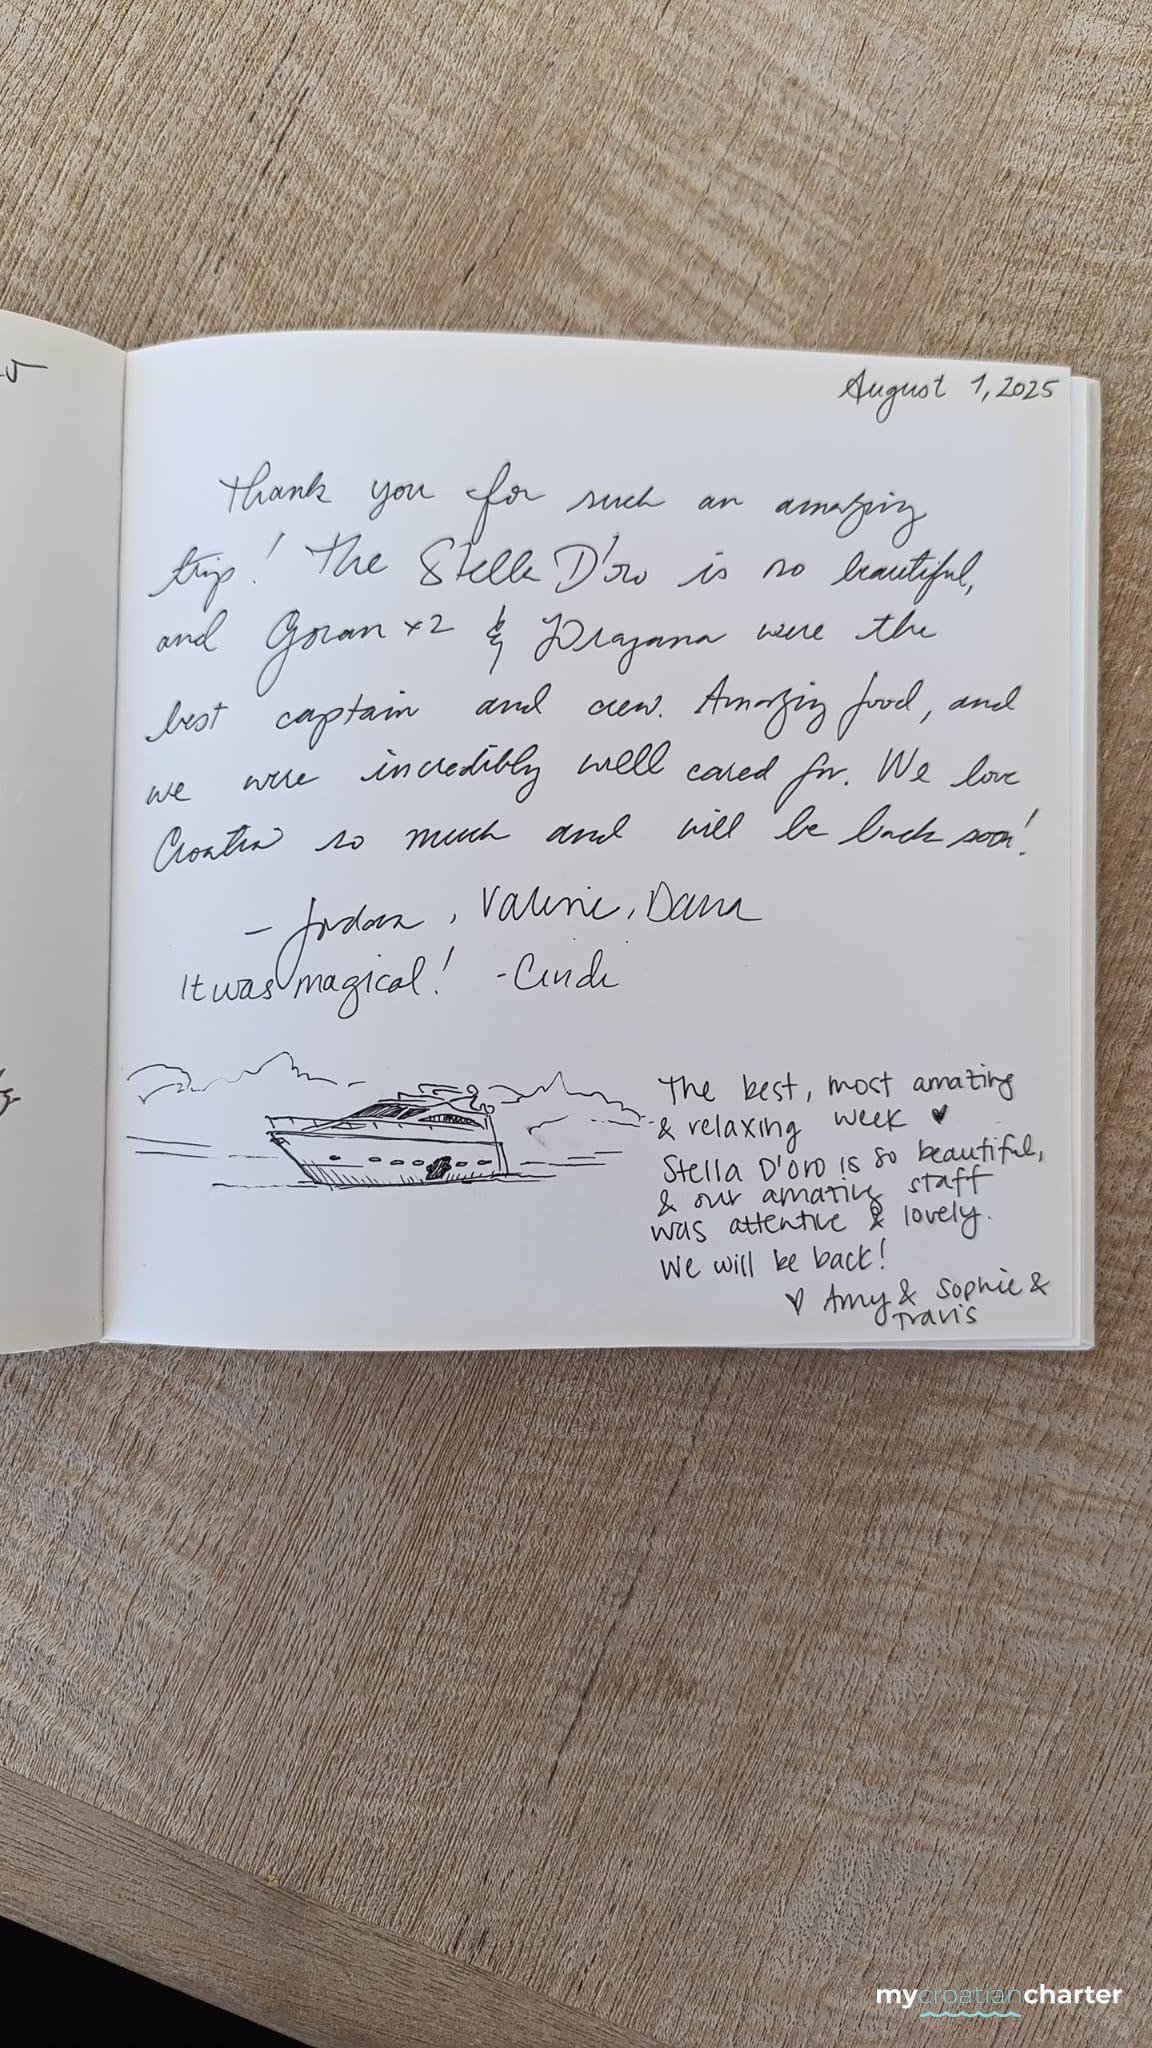 August 1, 2025
Thank you for such an amazing
trip! The Stella D'oro is so beautiful,
and Goran x2 & Dragana were the
best captain and crew. Amazing food, and
we were incredibly well cared for. We love
Croatia so much and will be back soon!
- Jordan, Valerie, Dana
It was magical! -Cindi
The best, most amazing
& relaxing week ♥
Stella D'oro is so beautiful,
& our amazing staff
was attentive & lovely.
We will be back!
♡ Amy & Sophie &
Travis
mycroatiancharter